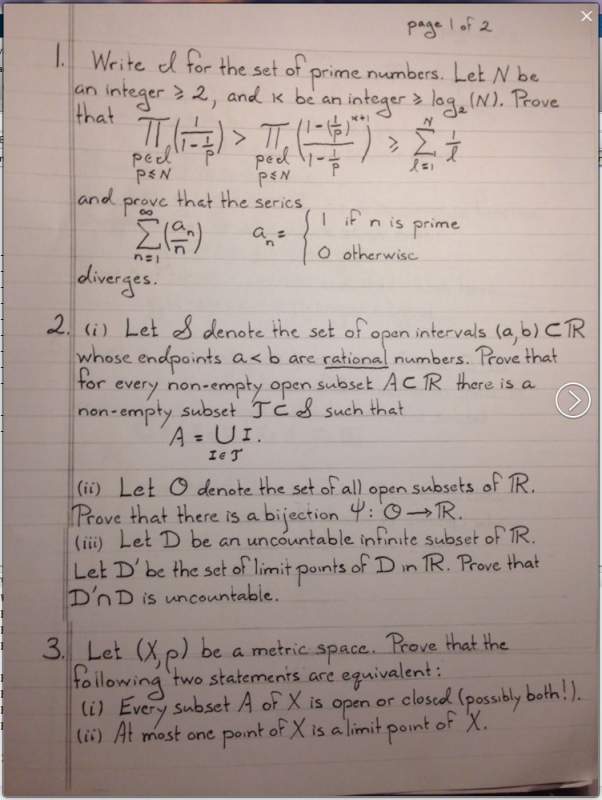 page 1 of 2
1. Write 𝒫 for the set of prime numbers. Let N be
an integer ≥ 2, and κ be an integer ≥ log₂(N). Prove
that ∏_{p∈𝒫, p≤N} (1/(1-1/p)) > ∏_{p∈𝒫, p≤N} ((1-(1/p)^{κ+1})/(1-1/p)) ≥ ∑_{l=1}^{N} 1/l
and prove that the series
∑_{n=1}^{∞} (aₙ/n) aₙ = { 1 if n is prime
0 otherwise
diverges.
2. (i) Let 𝒮 denote the set of open intervals (a,b) ⊂ ℝ
whose endpoints a < b are rational numbers. Prove that
for every non-empty open subset A ⊂ ℝ there is a
non-empty subset 𝒯 ⊂ 𝒮 such that
A = ∪_{I∈𝒯} I.
(ii) Let 𝒪 denote the set of all open subsets of ℝ.
Prove that there is a bijection Ψ: 𝒪 → ℝ.
(iii) Let D be an uncountable infinite subset of ℝ.
Let D' be the set of limit points of D in ℝ. Prove that
D'∩D is uncountable.
3. Let (X,ρ) be a metric space. Prove that the
following two statements are equivalent:
(i) Every subset A of X is open or closed (possibly both!).
(ii) At most one point of X is a limit point of X.